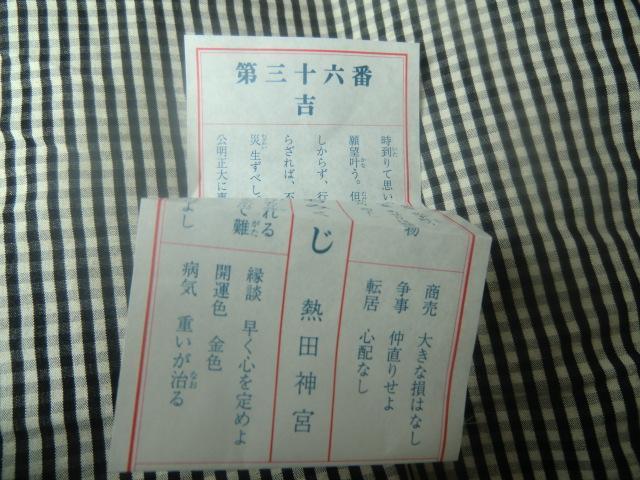 第三十六番
吉
時到りて思い
願望叶う。但
しからず、行
らざれば、不
災 生ずべし
公明正大に事
物
商売 大きな損はなし
争事 仲直りせよ
転居 心配なし
じ 熱田神宮
れる
で難
よし
縁談 早く心を定めよ
開運色 金色
病気 重いが治る